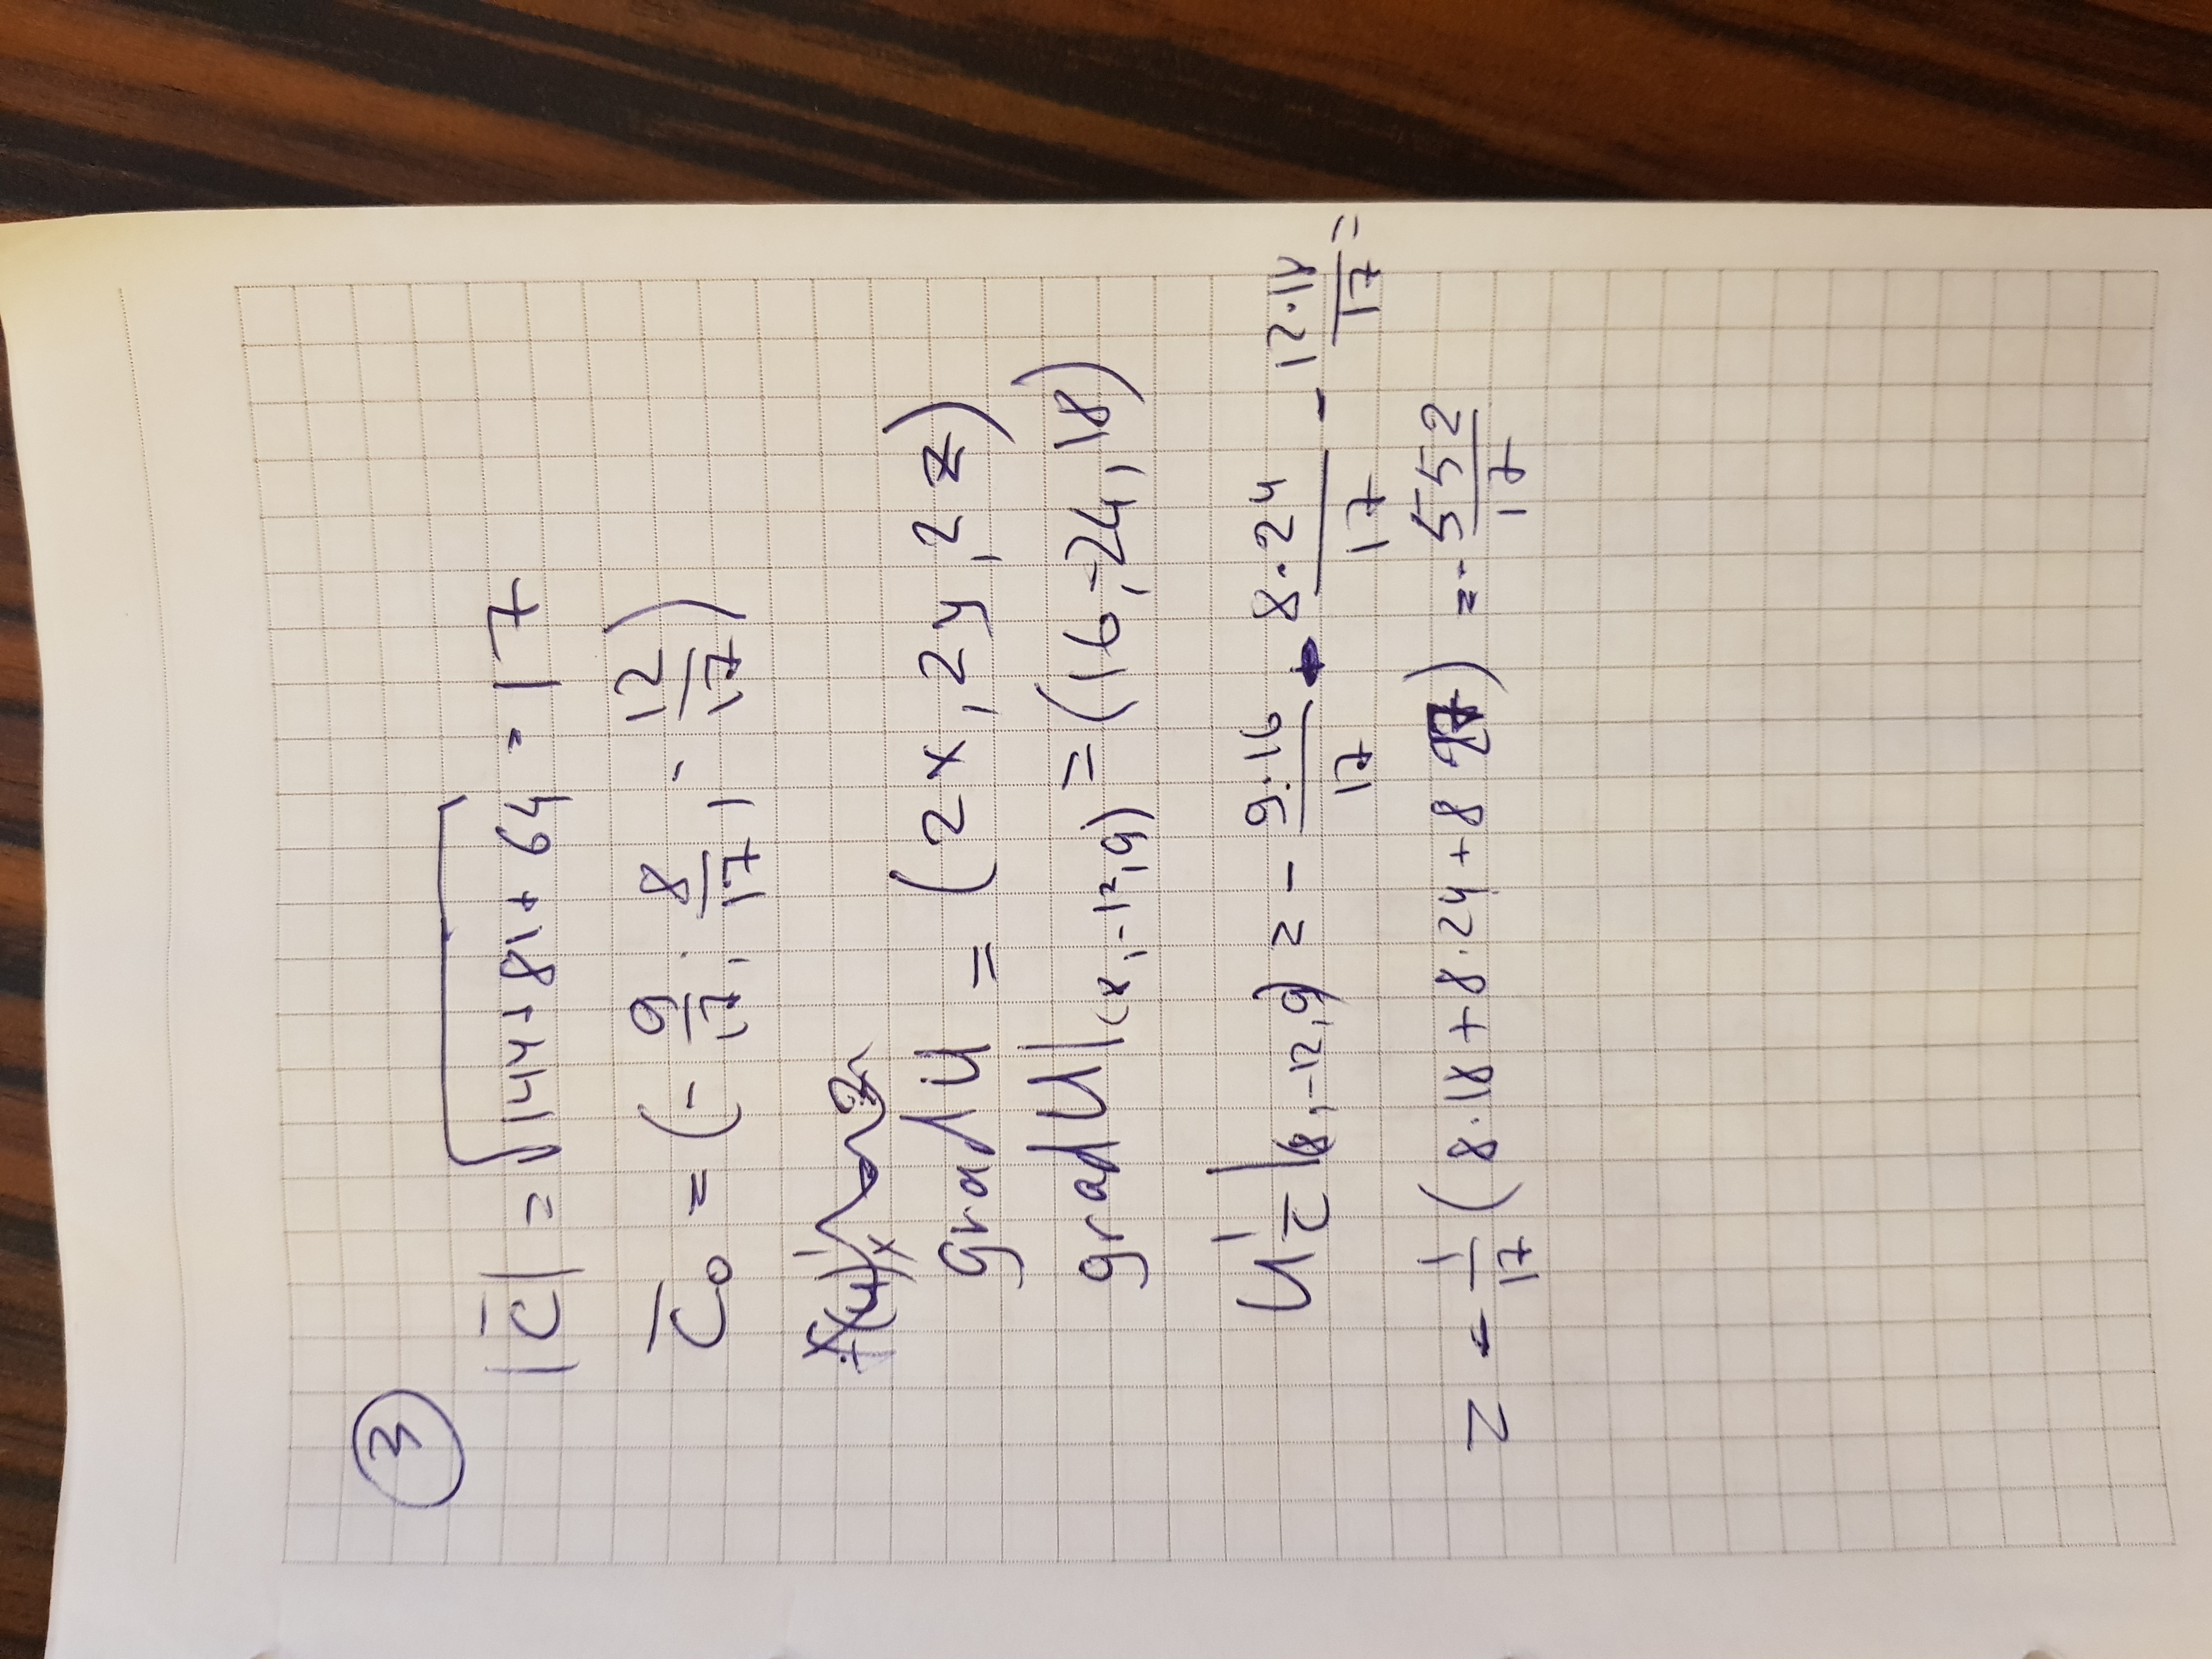 3
|c̄| = √(144 + 81 + 64) = 17
c̄₀ = (- 9/17, 8/17, - 12/17)
grad U = (2x, 2y, 2z)
grad U|(8, -12, 9) = (16, -24, 18)
U'c̄|(8, -12, 9) = - 9·16/17 - 8·24/17 - 12·18/17 =
= - 1/17 (8·18 + 8·24 + 8 27) = - 552/17